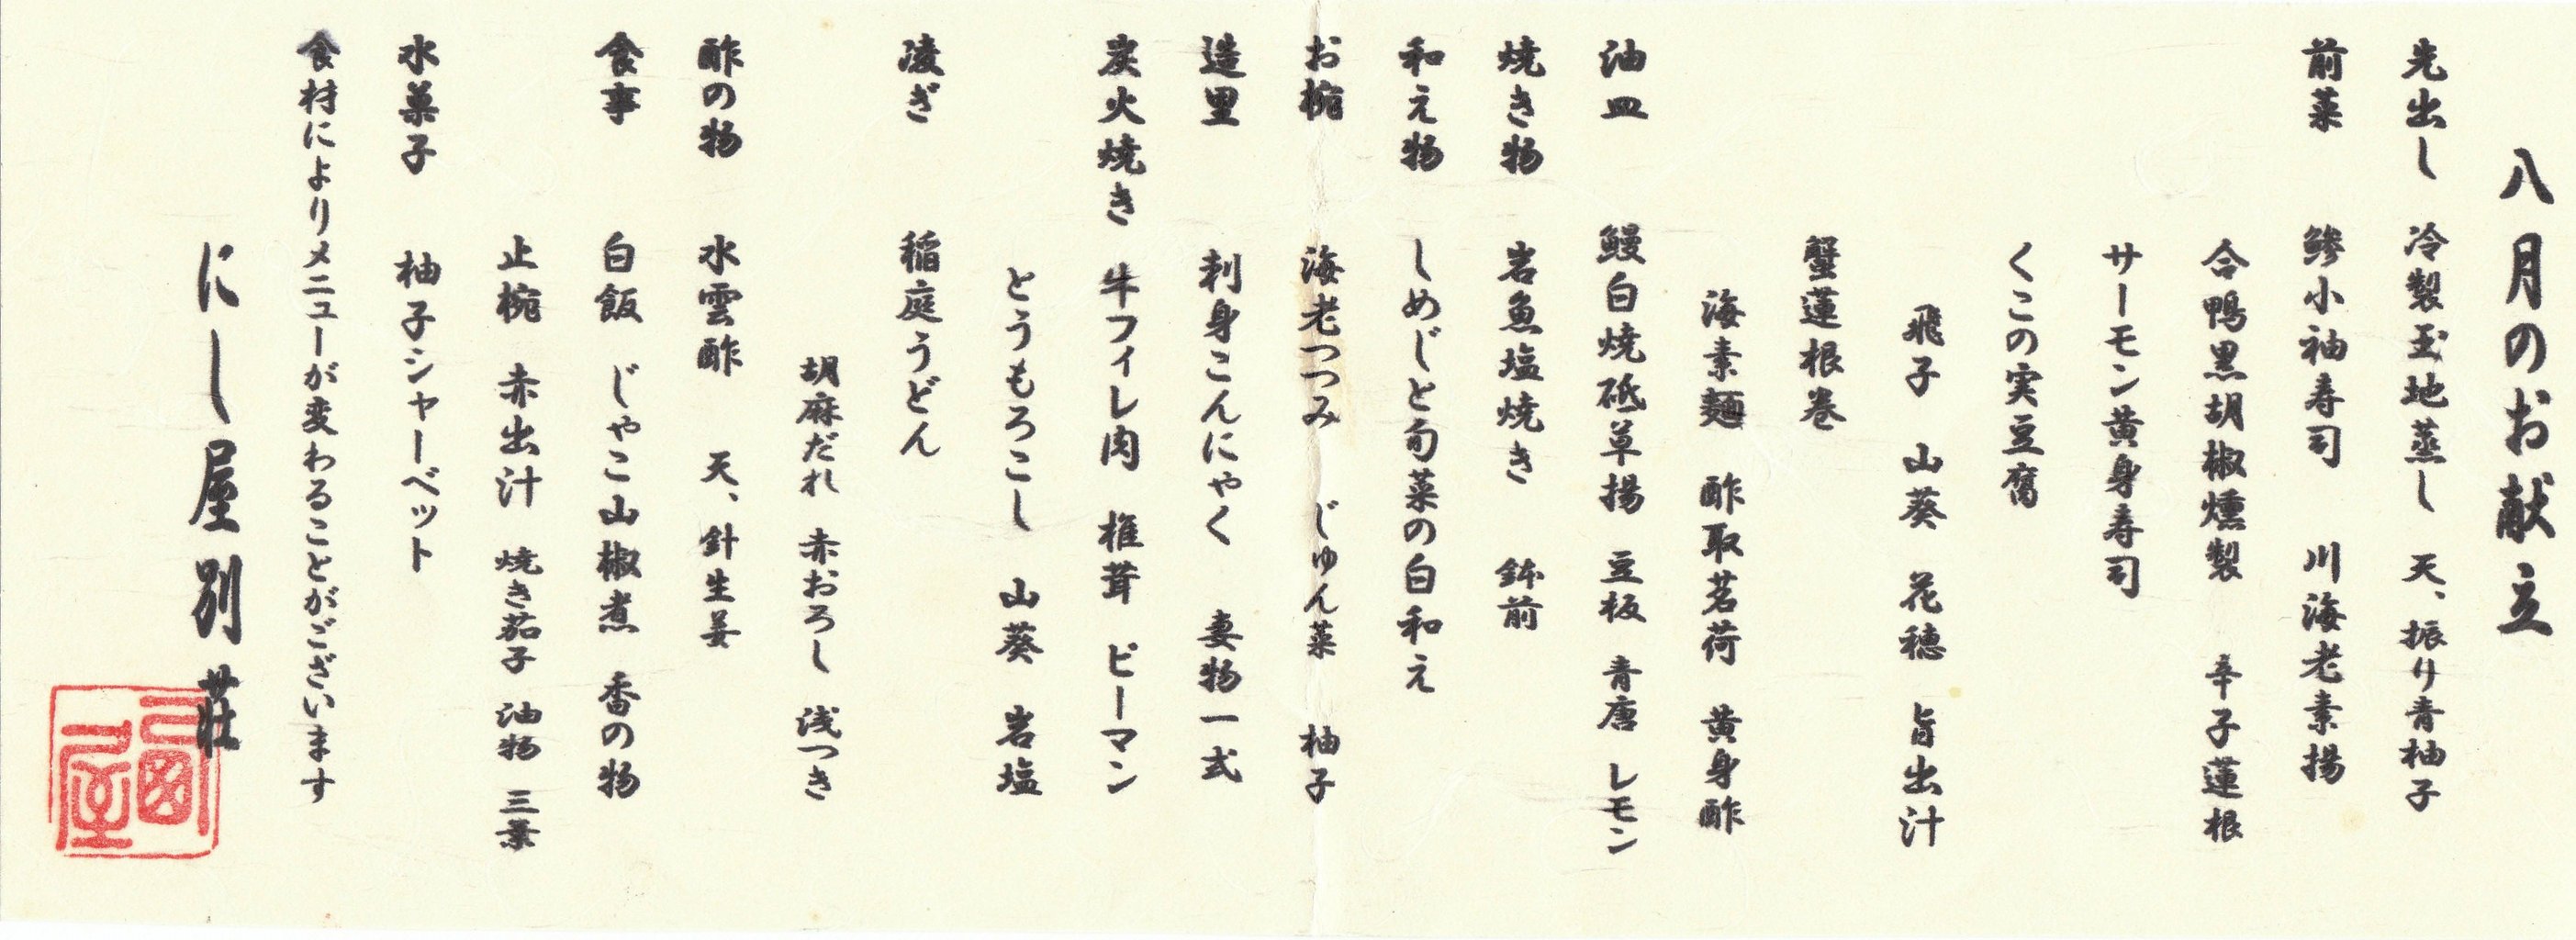 八月のお献立
先出し 冷製玉地蒸し 天、振り青柚子
前菜 鯵小袖寿司 川海老素揚
合鴨黒胡椒燻製 辛子蓮根
サーモン黄身寿司
くこの実豆腐
飛子 山葵 花穂 旨出汁
蟹蓮根巻
海素麺 酢取茗荷 黄身酢
油皿 鰻白焼砥草揚 豆板 青唐 レモン
焼き物 岩魚塩焼き 鉢前
和え物 しめじと旬菜の白和え
お椀 海老つつみ じゅん菜 柚子
造里 刺身こんにゃく 妻物一式
炭火焼き 牛フィレ肉 椎茸 ピーマン
とうもろこし 山葵 岩塩
凌ぎ 稲庭うどん
胡麻だれ 赤おろし 浅つき
酢の物 水雲酢 天、針生姜
食事 白飯 じゃこ山椒煮 香の物
止椀 赤出汁 焼き茄子 油物 三葉
水菓子 柚子シャーベット
食材によりメニューが変わることがございます
にし屋別荘
西屋